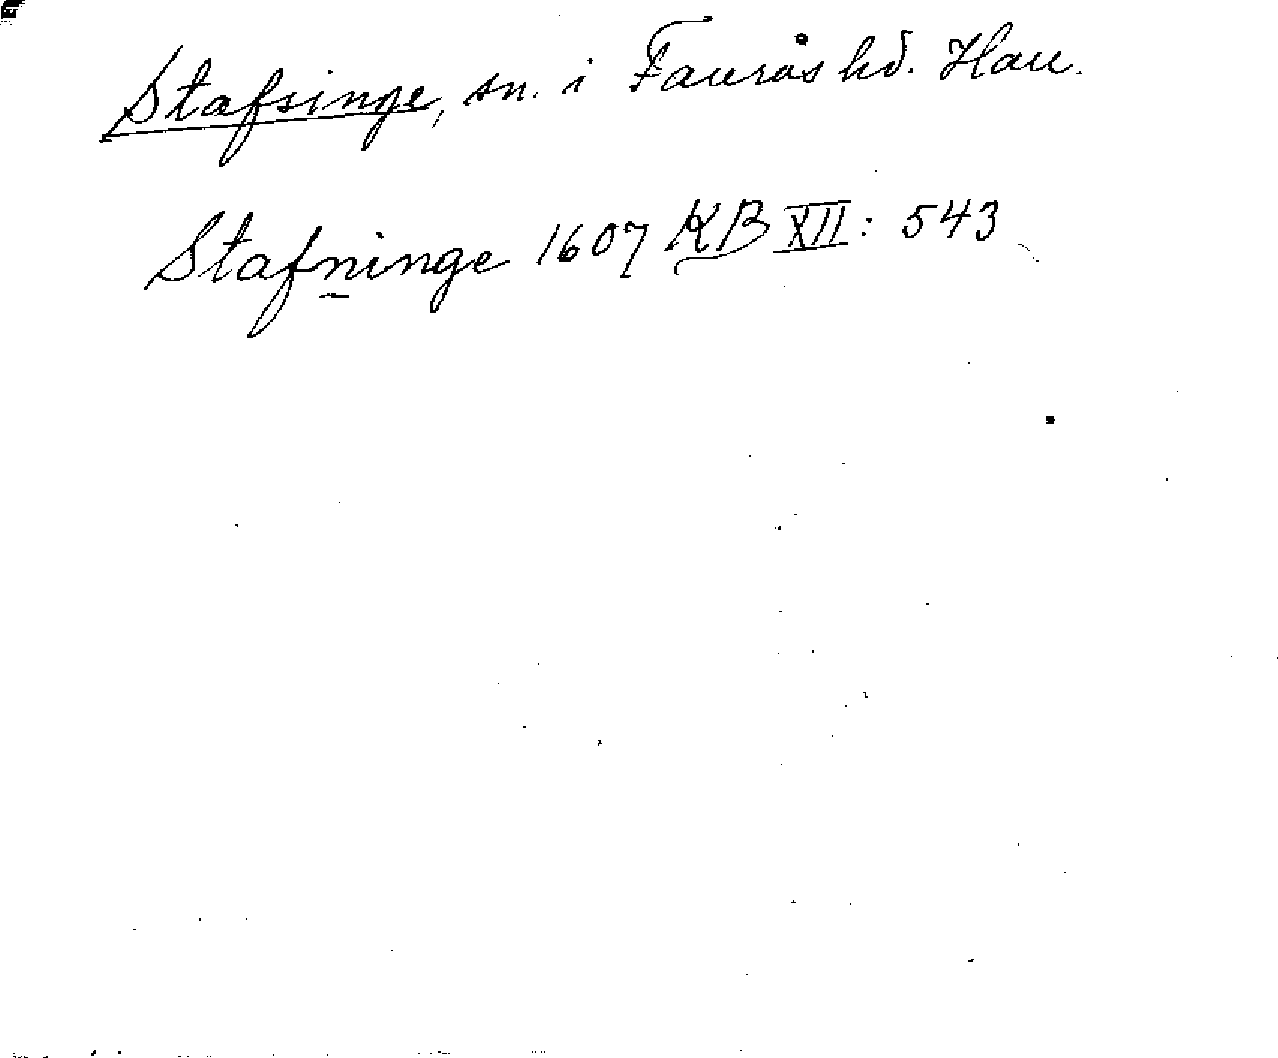 Stafsinge, sn. i Faurås hd. Hall.
Stafninge 1607 KB XII: 543